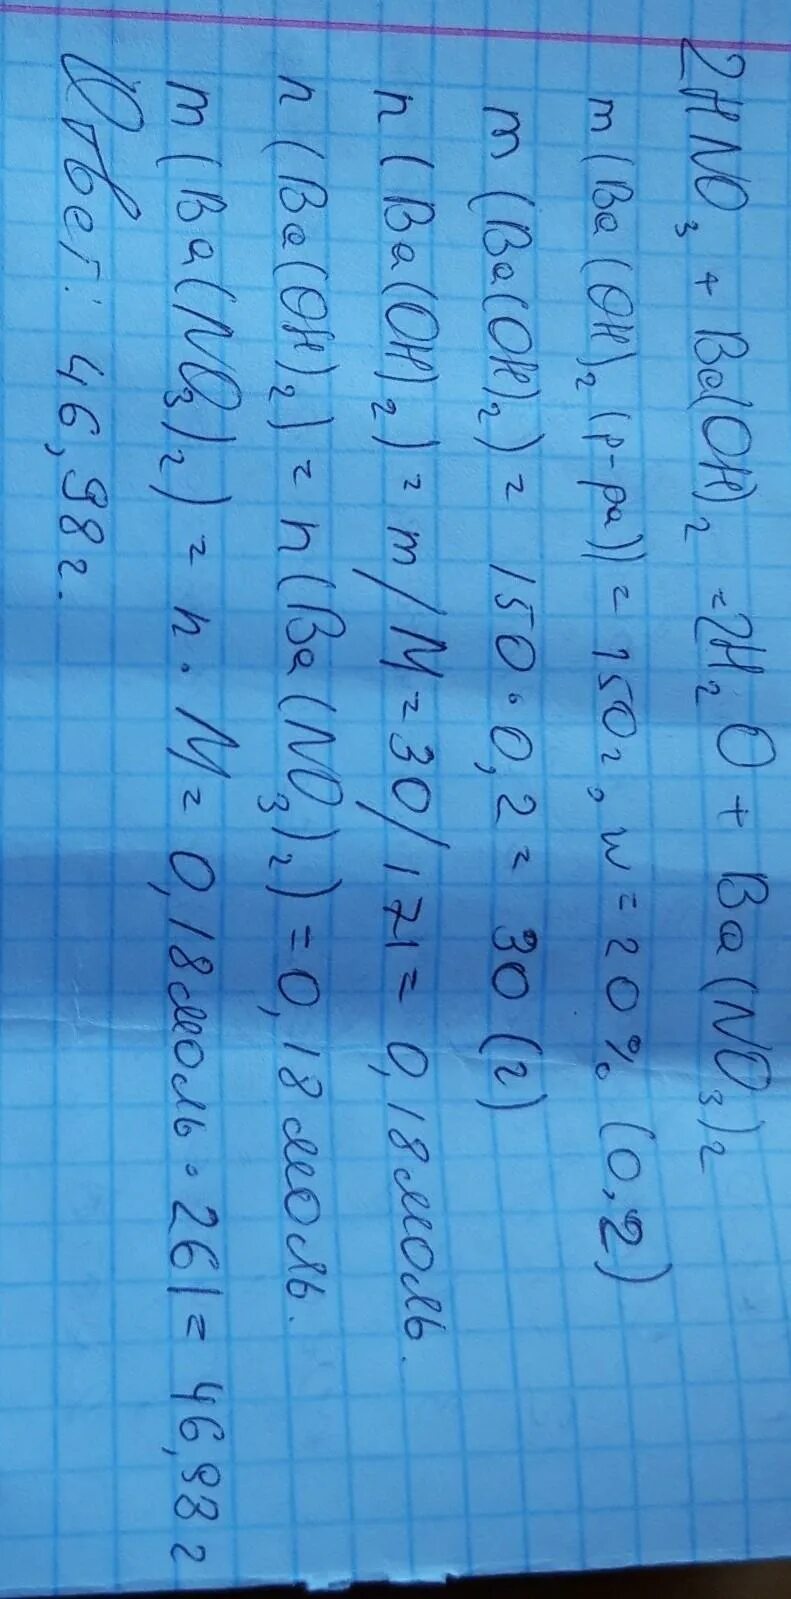 2HNO₃ + Ba(OH)₂ = 2H₂O + Ba(NO₃)₂
m(Ba(OH)₂(р-ра)) = 150г, w = 20% (0,2)
m(Ba(OH)₂) = 150·0,2 = 30 (г)
n(Ba(OH)₂) = m/M = 30/171 = 0,18 моль.
n(Ba(OH)₂) = n(Ba(NO₃)₂) = 0,18 моль.
m(Ba(NO₃)₂) = n·M = 0,18 моль·261 = 46,98 г
Ответ: 46,98г.